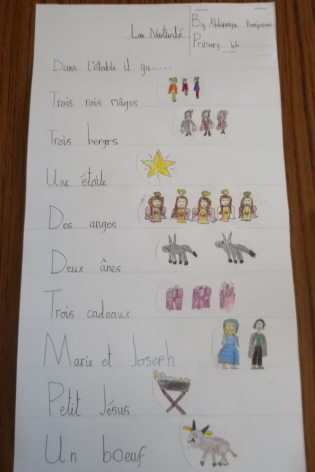 La Nativité
By
Primary 4b
Dans l'étable il ya....
Trois rois mages
Trois bergers
Une étoile
Des anges
Deux ânes
Trois cadeaux
Marie et Joseph
Petit Jésus
Un boeuf